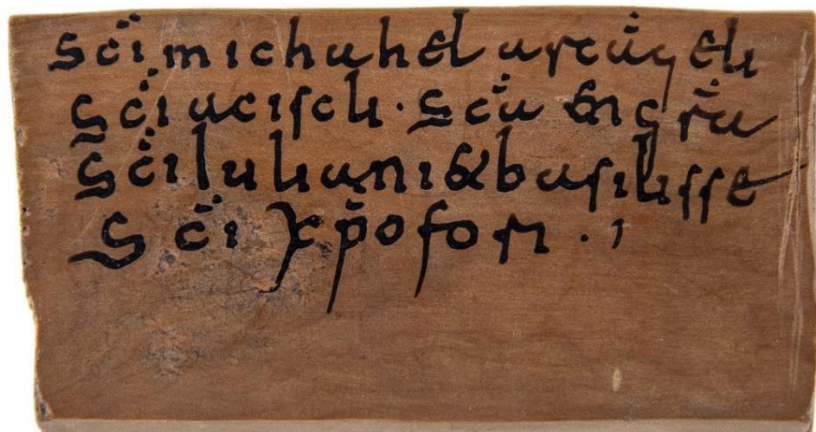 sc̄i michahel arcāgeli
Sc̄i aciscli · Sc̄a engr̄a
Sc̄i Iuliani & basilisse
Sc̄i xp̄ofori .,